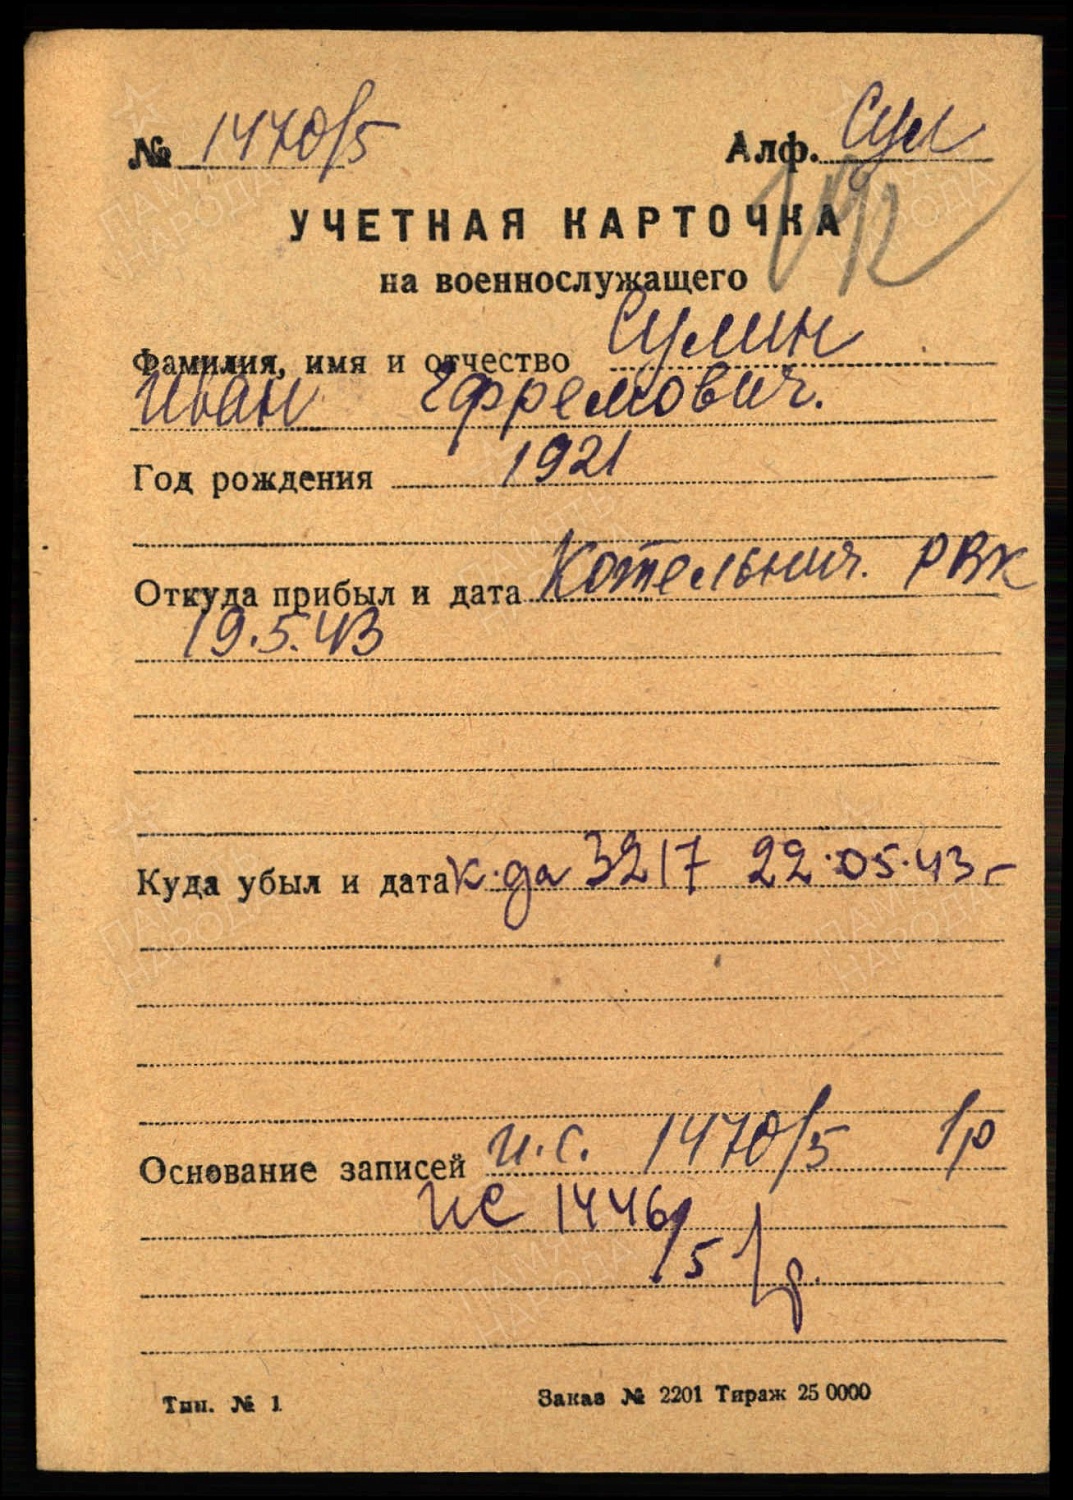 № 1470/5 Алф. Сул
УЧЕТНАЯ КАРТОЧКА
на военнослужащего
Фамилия, имя и отчество Сулин
Иван Ефремович.
Год рождения 1921
Откуда прибыл и дата Котельнич. РВК
19.5.43
Куда убыл и дата к-да 3217 22.05.43 г
Основание записей и.с. 1470/5 1р
ис 1446/5 1р.
Тип. № 1 Заказ № 2201 Тираж 25 0000
ПАМЯТЬ НАРОДА